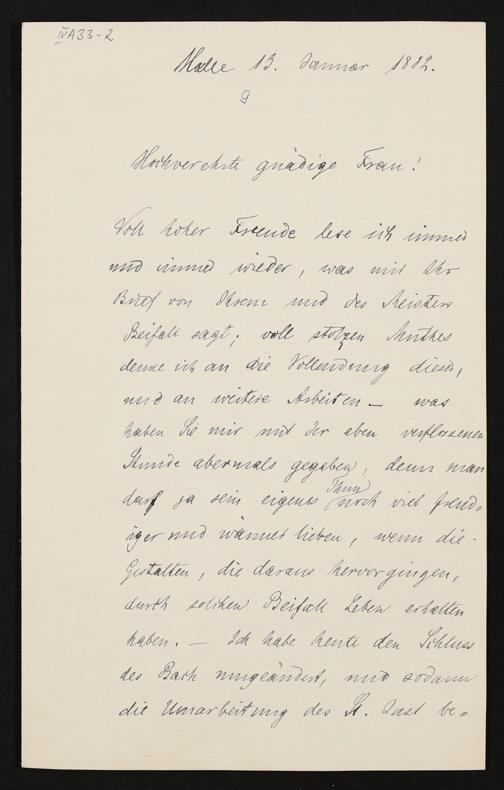 IVA33-2
Halle 13. Januar 1882.
9
Hochverehrte gnädige Frau!
Voll hoher Freude lese ich immer
und immer wieder, was mir Ihr
Brief von Ihrem und des Meisters
Beifall sagt; voll stolzen Muthes
denke ich an die Vollendung dieses,
und an weitere Arbeiten – was
haben Sie mir mit der eben verflossenen
Stunde abermals gegeben, denn man
darf ja sein eigenes Thun noch viel freud-
iger und wärmer lieben, wenn die
Gestalten, die daraus hervorgingen,
durch solchen Beifall Leben erhalten
haben. – Ich habe heute den Schluss
des Bach umgeändert, und sodann
die Umarbeitung des St. Just be-